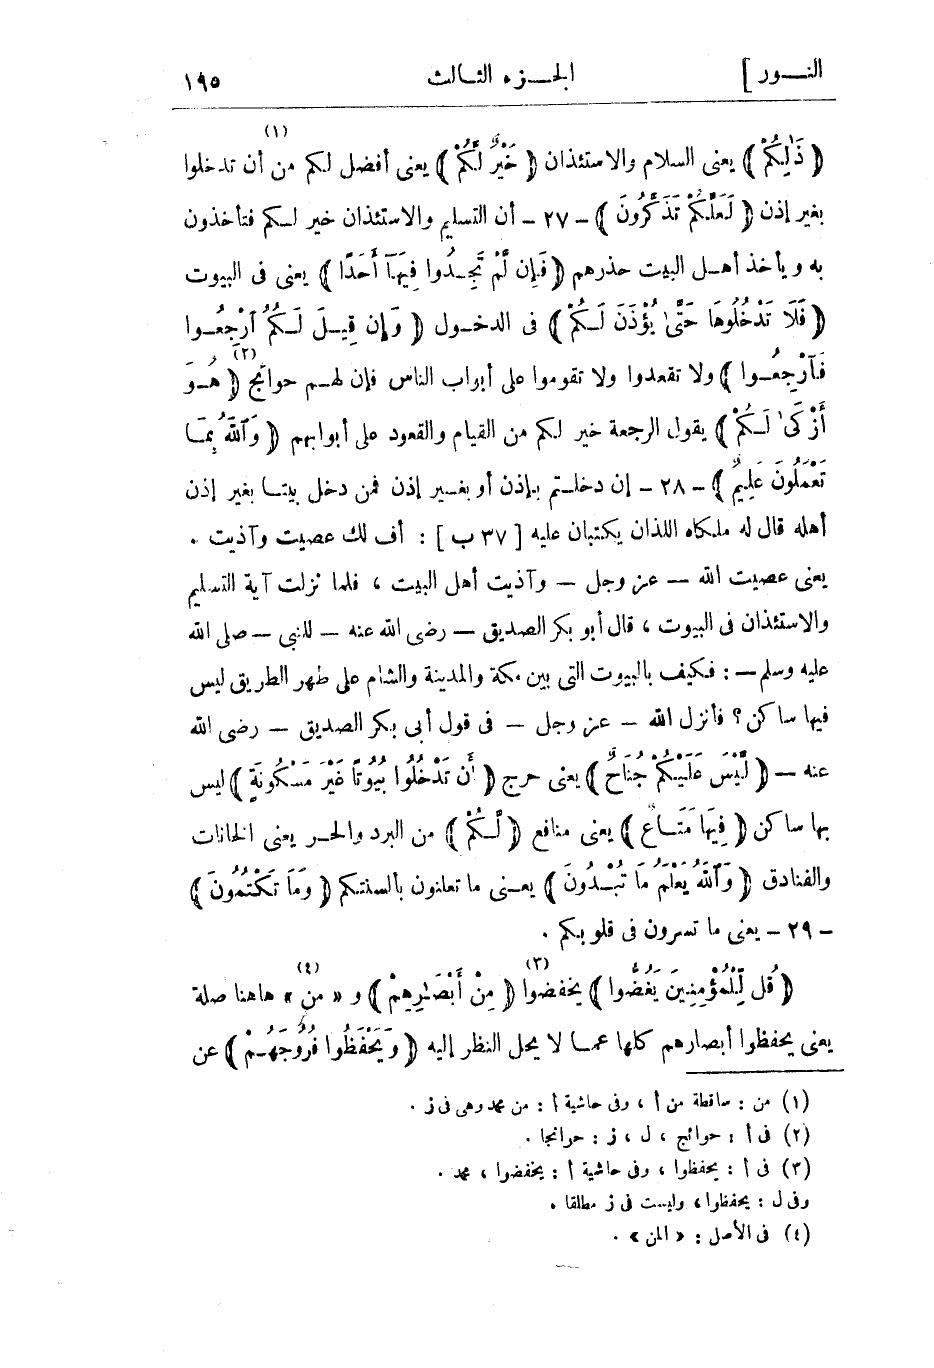 النور ] الجزء الثالث ١٩٥
(١)
﴿ ذَٰلِكُمْ ﴾ يعنى السلام والاستئذان ﴿ خَيْرٌ لَّكُمْ ﴾ يعنى أفضل لكم من أن تدخلوا
بغير إذن ﴿ لَعَلَّكُمْ تَذَكَّرُونَ ﴾ - ٢٧ - أن التسليم والاستئذان خير لكم فتأخذون
به ويأخذ أهل البيت حذرهم ﴿ فَإِن لَّمْ تَجِدُوا فِيهَآ أَحَدًا ﴾ يعنى فى البيوت
﴿ فَلَا تَدْخُلُوهَا حَتَّىٰ يُؤْذَنَ لَكُمْ ﴾ فى الدخول ﴿ وَإِن قِيلَ لَكُمُ ٱرْجِعُوا
(٢)
فَٱرْجِعُوا ﴾ ولا تقعدوا ولا تقوموا على أبواب الناس فإن لهم حوائج ﴿ هُوَ
أَزْكَىٰ لَكُمْ ﴾ يقول الرجعة خير لكم من القيام والقعود على أبوابهم ﴿ وَٱللَّهُ بِمَا
تَعْمَلُونَ عَلِيمٌ ﴾ - ٢٨ - إن دخلتم بإذن أو بغير إذن فمن دخل بيتا بغير إذن
أهله قال له ملكاه اللذان يكتبان عليه [ ٣٧ ب ] : أف لك عصيت وآذيت .
يعنى عصيت الله — عز وجل — وآذيت أهل البيت ، فلما نزلت آية التسليم
والاستئذان فى البيوت ، قال أبو بكر الصديق — رضى الله عنه — للنبى — صلى الله
عليه وسلم — : فكيف بالبيوت التى بين مكة والمدينة والشام على ظهر الطريق ليس
فيها ساكن ؟ فأنزل الله - عز وجل - فى قول أبى بكر الصديق - رضى الله
عنه — ﴿ لَّيْسَ عَلَيْكُمْ جُنَاحٌ ﴾ يعنى حرج ﴿ أَن تَدْخُلُوا بُيُوتًا غَيْرَ مَسْكُونَةٍ ﴾ ليس
بها ساكن ﴿ فِيهَا مَتَاعٌ ﴾ يعنى منافع ﴿ لَّكُمْ ﴾ من البرد والحر يعنى الخانات
والفنادق ﴿ وَٱللَّهُ يَعْلَمُ مَا تُبْدُونَ ﴾ يعنى ما تعلنون بألسنتكم ﴿ وَمَا تَكْتُمُونَ ﴾
- ٢٩ - يعنى ما تسرون فى قلوبكم .
(٣) (٤)
﴿ قُل لِّلْمُؤْمِنِينَ يَغُضُّوا ﴾ يخفضوا ﴿ مِنْ أَبْصَٰرِهِمْ ﴾ و « من » هاهنا صلة
يعنى يحفظوا أبصارهم كلها عما لا يحل النظر إليه ﴿ وَيَحْفَظُوا فُرُوجَهُمْ ﴾ عن
(١) من : ساقطة من أ ، وفى حاشية أ : من محمد وهى فى ز .
(٢) فى أ : حوائج ، ل ، ز : حوائجا .
(٣) فى أ : يحفظوا ، وفى حاشية أ : يخفضوا ، محمد .
وفى ل : يحفظوا ، وليست فى ز مطلقا .
(٤) فى الأصل : « المن » .